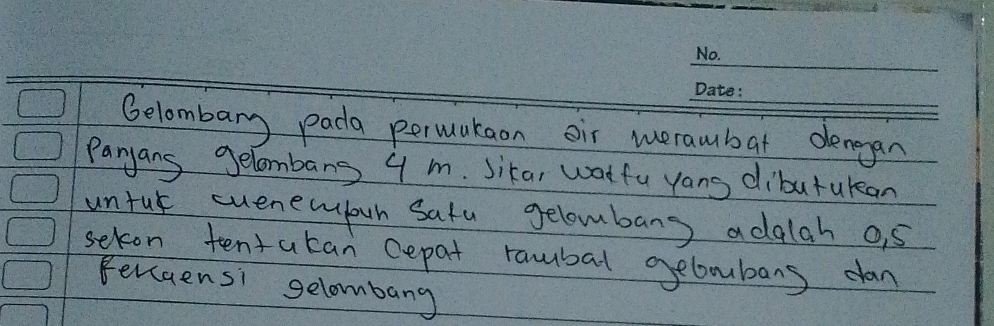 No.
Date:
Gelombang pada permukaan air merambat dengan
Panjang gelombang 4 m. Jikar waktu yang dibutukan
untuk menempuh Satu gelombang adalah 0,5
sekon tentukan Cepat rambal gelombang dan
Fekuensi gelombang